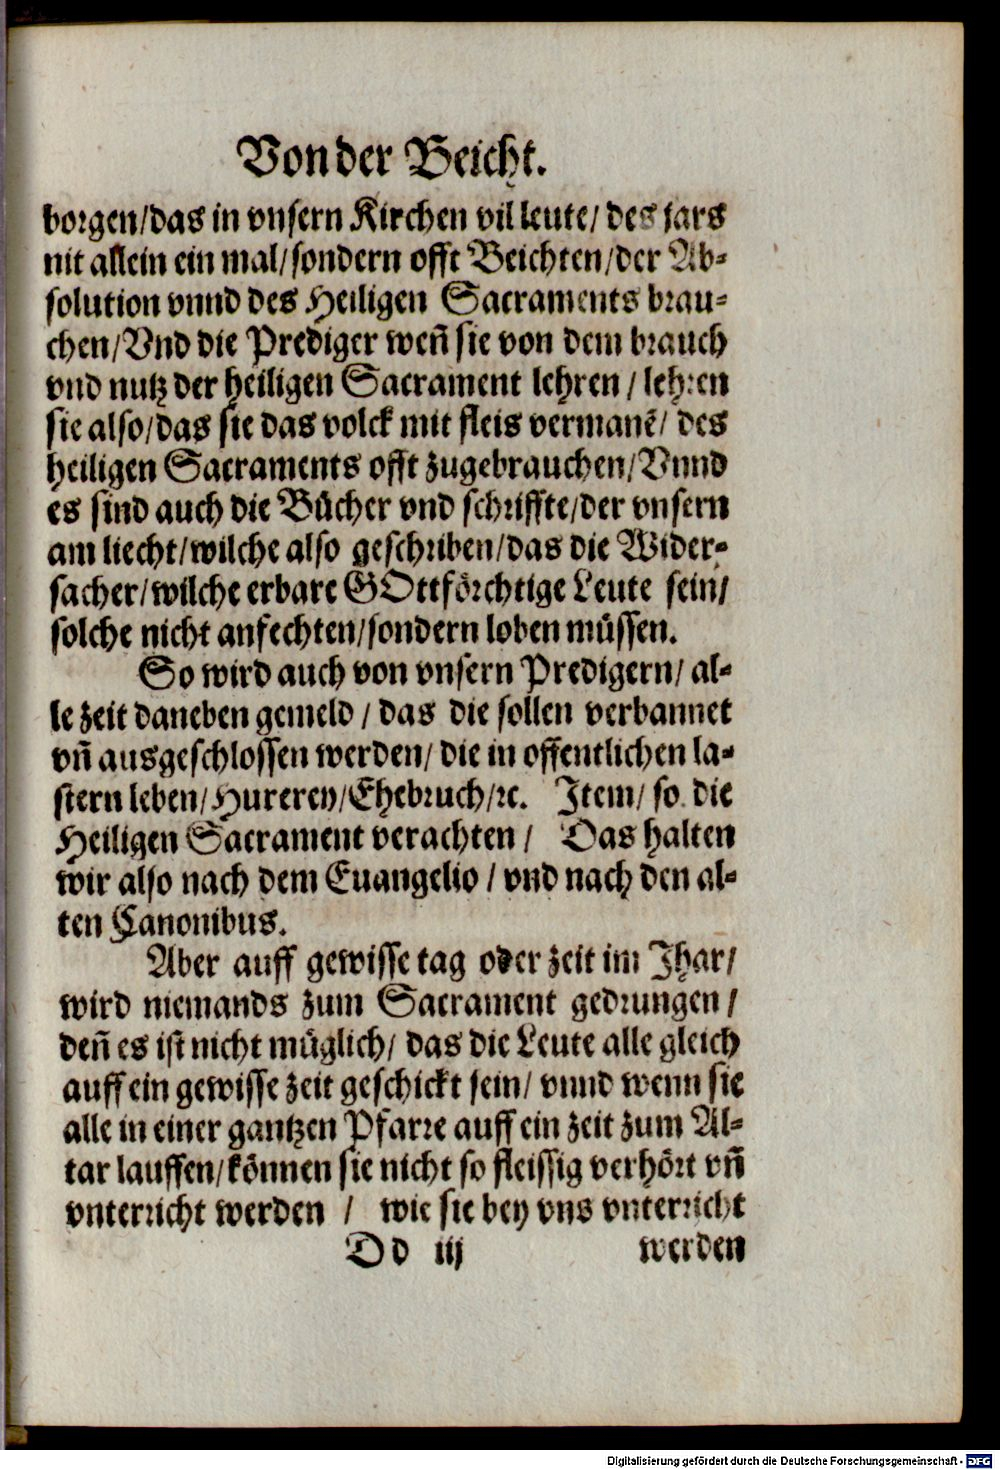 Von der Beicht.
borgen/das in vnsern Kirchen vil leute/ des jars
nit allein ein mal/sondern offt Beichten/der Ab-
solution vnnd des Heiligen Sacraments brau-
chen/Vnd die Prediger weñ sie von dem brauch
vnd nutz der heiligen Sacrament lehren / lehren
sie also/das sie das volck mit fleis vermanẽ/ des
heiligen Sacraments offt zugebrauchen/Vnnd
es sind auch die Bücher vnd schriffte/der vnsern
am liecht/wilche also geschriben/das die Wider-
sacher/wilche erbare GOttförchtige Leute sein/
solche nicht anfechten/sondern loben müssen.
So wird auch von vnsern Predigern/ al-
le zeit daneben gemeld / das die sollen verbannet
vñ ausgeschlossen werden/ die in offentlichen la-
stern leben/Hurerey/Ehebruch/ꝛc. Item/ so die
Heiligen Sacrament verachten / Das halten
wir also nach dem Euangelio / vnd nach den al-
ten Canonibus.
Aber auff gewisse tag oder zeit im Jhar/
wird niemands zum Sacrament gedrungen /
deñ es ist nicht müglich/ das die Leute alle gleich
auff ein gewisse zeit geschickt sein/ vnnd wenn sie
alle in einer gantzen Pfarre auff ein zeit zum Al-
tar lauffen/können sie nicht so fleissig verhört vñ
vnterricht werden / wie sie bey vns vnterricht
Dd iij werden
Digitalisierung gefördert durch die Deutsche Forschungsgemeinschaft - DFG